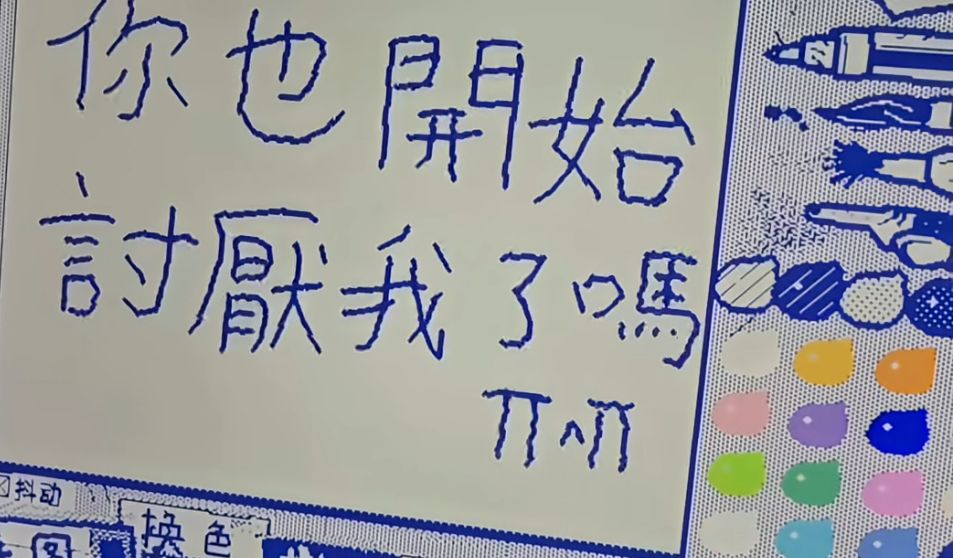 你也開始
討厭我了嗎
ㄇㄇ
抖动
換色
图